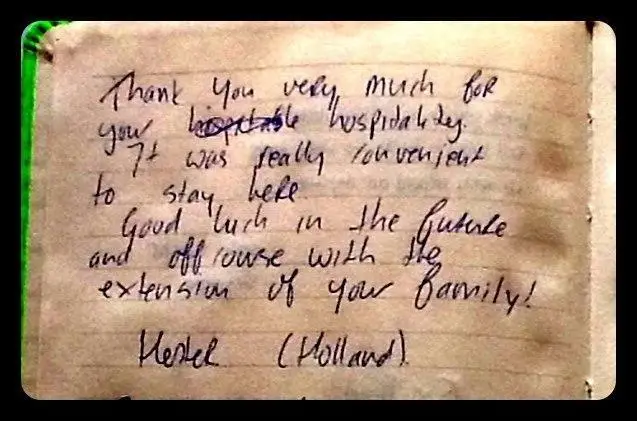 Thank you very much for
your hospitality.
It was really convenient
to stay here.
Good luck in the future
and off course with the
extension of your family!
Hester (Holland)